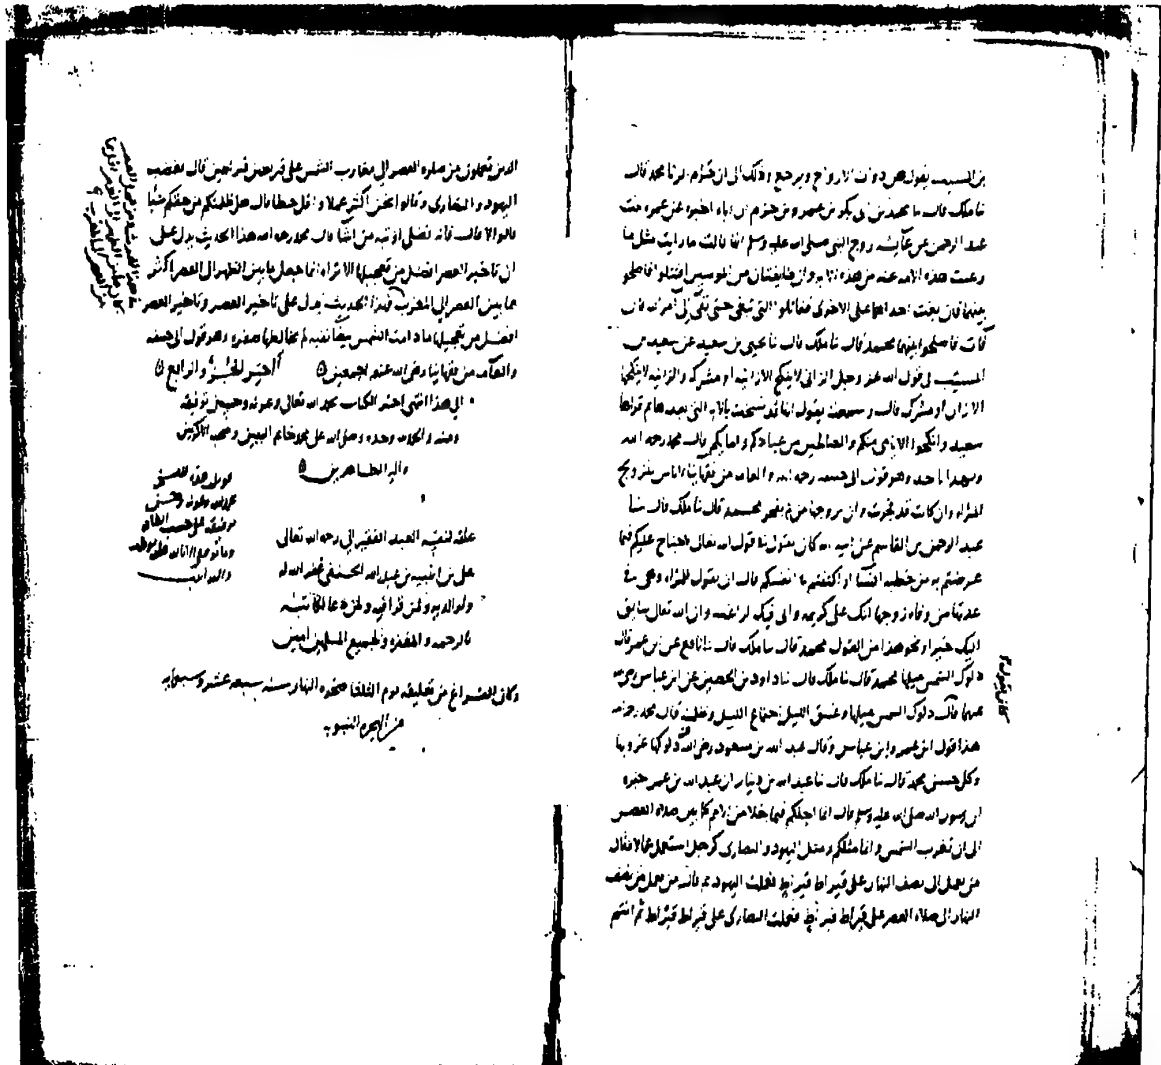 بن المسيب يقول هن ذوات الازواج ويرجع ذلك الى ان حرم الزنا محمد قال
نا ملك قال نا محمد بن ابى بكر بن عمرو بن حزم ان اباه اخبره عن عمره بنت
عبد الرحمن عن عايشه زوج النبى صلى الله عليه وسلم انها قالت ما رايت مثل ما
رغبت هذه الامه عنه من هذه الايه وان طايفتان من المومنين اقتتلوا فاصلحوا
بينهما فان بغت احداهما على الاخرى فقاتلوا التى تبغى حتى تفى الى امر الله فان
فآت فاصلحوا بينهما محمد قال نا ملك قال نا يحيى بن سعيد عن سعيد بن
المسيب فى قول الله عز وجل الزانى لا ينكح الا زانيه او مشركه والزانيه لا ينكحها
الا زان او مشرك قال وسمعته يقول انها قد نسخت بالايه التى بعدها ثم قراها
سعيد وانكحوا الايامى منكم والصالحين من عبادكم وامايكم قال محمد رحمه الله
وبهذا ناخذ وهو قول ابى حنيفه رحمه الله والعامه من فقهاينا لا باس بتزويج
المراه وان كانت قد فجرت وان يتزوجها من لم يفجر محمد قال نا ملك قال نا
عبد الرحمن بن القاسم عن ابيه انه كان يقول فى قول الله تعالى لا جناح عليكم فيما
عرضتم به من خطبه النسا او اكننتم فى انفسكم قال ان يقول للمراه وهى فى
عدتها من وفاه زوجها انك على كريمه وانى فيك لراغب وان الله تعالى سايق
اليك خيرا ونحو هذا من القول محمد قال نا ملك قال نا نافع عن بن عمر قال
دلوك الشمس ميلها محمد قال نا ملك قال نا داود بن الحصين عن ابن عباس
كان يقول
عنهما قال دلوك الشمس ميلها وغسق الليل اجتماع الليل وظلمته قال محمد رحمه الله
هذا قول ابن عمر وابن عباس وقال عبد الله بن مسعود رضى الله عنه دلوكها غروبها
وكل حسن محمد قال نا ملك قال نا عبد الله بن دينار ان عبد الله بن عمر اخبره
ان رسول الله صلى الله عليه وسلم قال انما اجلكم فيما خلا من الامم كما بين صلاه العصر
الى ان تغرب الشمس وانما مثلكم ومثل اليهود والنصارى كرجل استعمل عمالا فقال
من يعمل الى نصف النهار على قيراط قيراط فعملت اليهود ثم قال من يعمل من نصف
النهار الى صلاه العصر على قيراط قيراط فعملت النصارى على قيراط قيراط ثم انتم
الذين تعملون من صلوه العصر الى مغارب الشمس على قيراطين قيراطين قال فغضب
اليهود والنصارى وقالوا نحن اكثر عملا واقل عطا قال هل ظلمتكم من حقكم شيا
قالوا لا قال فانه فضلى اوتيه من اشا قال محمد رحمه الله هذا الحديث يدل على
ان تاخير العصر افضل من تعجيلها الا تراه انما جعل ما بين الظهر الى العصر اكثر
مما بين العصر الى المغرب فهذا الحديث يدل على تاخير العصر وتاخير العصر
افضل من تعجيلها ما دامت الشمس بيضا نقيه لم يخالطها صفره وهو قول ابى حنيفه
والعامه من فقهاينا رضى الله عنهم اجمعين اخر الجزؤ الرابع
الى هذا انتهى اخر الكتاب بحمد الله تعالى وعونه وحسن توفيقه
ومنه والحمد لله وحده وصلى الله على محمد خاتم النبيين وصحبه الاكرمين
واله الطاهرين
علقه لنفسه العبد الفقير الى رحمه الله تعالى
على بن بن عبد الله الحنفى غفر الله له
ولوالديه ولمن قرا فيه ولمن دعا لكاتبه
بالرحمه والمغفره ولجميع المسلمين امين
وكان الفراغ من تعليقه يوم الثلثا ضحوه النهار سنه سبعه عشر وسبعمايه
من الهجره النبويه